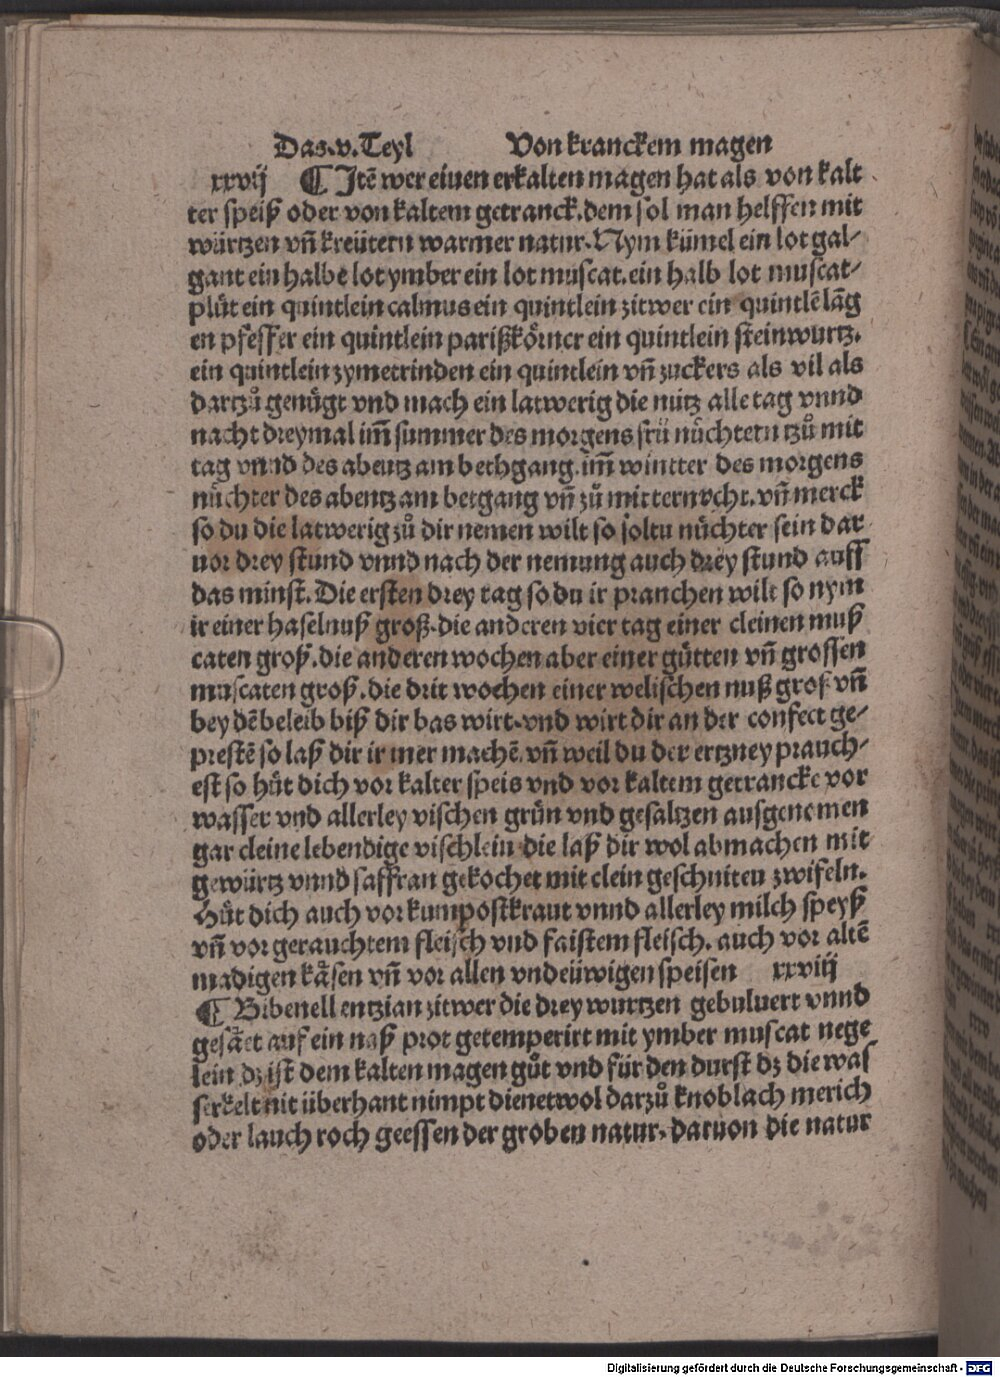 Das.v.Teyl Von kranckem magen
xxvij ¶ Jtē wer einen erkalten magen hat als von kalt
ter speiß oder von kaltem getranck.dem sol man helffen mit
würtzen vñ kreütern warmer natur.Nym kümel ein lot gal/
gant ein halbe lot ymber ein lot muscat.ein halb lot muscat/
plůt ein quintlein calmus ein quintlein zitwer ein quintlē lāg
en pfeffer ein quintlein parißkörner ein quintlein steinwurtz.
ein quintlein zymetrinden ein quintlein vñ zuckers als vil als
dartzů genügt vnd mach ein latwerig die nütz alle tag vnnd
nacht dreymal im̄ summer des morgens frü nüchtern tzů mit
tag vnnd des abentz am bethgang.im̄ wintter des morgens
nüchter des abentz am betgang vñ zů mitternocht.vñ merck
so du die latwerig zů dir nemen wilt so soltu nüchter sein dar
uor drey stund vnnd nach der nemung auch drey stund auff
das minst.Die ersten drey tag so du ir pranchen wilt so nym
ir einer haselnuß groß.die anderen vier tag einer cleinen muß
caten groß.die anderen wochen aber einer gütten vñ grossen
muscaten groß.die drit wochen einer welischen nuß groß vñ
bey dē beleib biß dir bas wirt.vnd wirt dir an der confect ge/
prestē so laß dir ir mer machē.vñ weil du der ertzney prauch/
est so hüt dich vor kalter speis vnd vor kaltem getrancke vor
wasser vnd allerley vischen grün vnd gesaltzen ausgenomen
gar cleine lebendige vischlein die laß dir wol abmachen mit
gewürtz vnnd saffran gekochet mit clein geschniten zwifeln.
Hüt dich auch vor kumpostkraut vnnd allerley milch speyß
vñ vor gerauchtem fleisch vnd faistem fleisch. auch vor altē
madigen käsen vñ vor allen vndeüwigen speisen xxviij
¶ Bibenell entzian zitwer die drey wurtzen gebuluert vnnd
gesäet auf ein naß prot getemperirt mit ymber muscat nege
lein dz ist dem kalten magen gůt vnd für den durst dz die was
serkelt nit überhant nimpt dienet wol darzů knoblach merich
oder lauch roch geessen der groben natur.daruon die natur
Digitalisierung gefördert durch die Deutsche Forschungsgemeinschaft - DFG